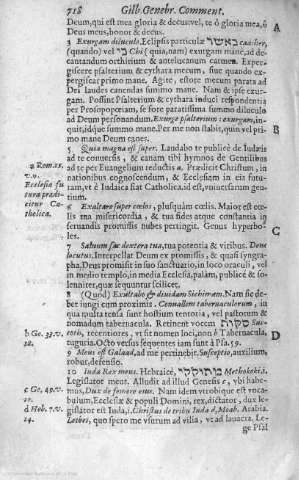 718 Gilb. Genebr. Comment.
Deum, qui est mea gloria & decus: vel, te ô gloria mea, ô
Deus meus, honor & decus. A
3 Exurgam diluculo. Eclipsis particulæ כאשר caascher,
(quando) vel כי chi (quia, nam) exurgam mane, ad de-
cantandum orthinum & antelucanum carmen. Exper-
giscere psalterium & cythara mecum, siue quando ex-
pergiscar primo mane. Agite, estote mecum parata ad
Dei laudes canendas summo mane. Nam & ipse exur-
gam. Possint Psalterium & cythara induci respondentia
per Prosopopoeiam, se fore paratissima summo diluculo
ad Deum personandum. Exurge psalterium: exurgam, in-
quit, idque summo mane. Per me non stabit, quin vel pri-
mo mane Deum exores. B
5 Quia magna est super. Laudabo te publicè de Iudæis
ad te conuersis, & canam tibi hymnos de Gentilibus
a Rom. 15. ad te per Euangelium reductis. a Prædicit Christum, in
v. 9. nationibus cognoscendum, & Ecclesiam in eis futu-
Ecclesia fu ram, vt è Iudaica fiat Catholica. id est, vniuersarum gen-
tura prædi- tium.
citur Ca- 6 Exaltare super cælos, plusquam coelos. Maior est coe-
tholica. lis tua misericordia, & tua fides atque constantia in
seruandis promissis nubes pertingit. Genus hyperbo-
les.
7 Saluum fac dextera tua, tua potentia & viribus. Deus
locutus. Interpellat Deum ex promissis, & quasi syngra-
pha, Deus promisit in suo sanctuario, in loco oraculi, vel
in medio templo, in media Ecclesia, palam, publicè & so-
lenniter, quæ sequuntur scilicet,
8 (Quod) Exultabo & diuidam Sichimam. Nam se de-
bet iungi cum proximo. Conuallem tabernaculorum, in
qua multa tensa sunt hostium tentoria, vel pastorum &
b Ge. 33. v. nomadum tabernacula. Retinent vocem סכות Suc- D
18. coth, recentiores, vt sit nomen loci, non b Tabernacula,
tuguria. Octo versus sequentes iam sunt à Psa. 59.
9 Meus est Galaad, ad me pertinebit. Susceptio, auxilium,
robur, defensio.
10 Iuda Rex meus. Hebraicè, מחוקקי Mechokeki.
c Ge. 49. v. Legislator meus. Allusit ad illud Genesis c, vbi habe-
10. mus, Dux de femore eius. Nam idem vtrobique est voca-
d Heb. 7. v. bulum, Ecclesiæ & populi Domini, rex, dictator, dux le-
14. gislator sit Iuda, d Christus de tribu Iuda. Moab. Arabia.
Lebes, quo spero me vsurum ad vilia, vt ad lauacra. Le-
ge Psal